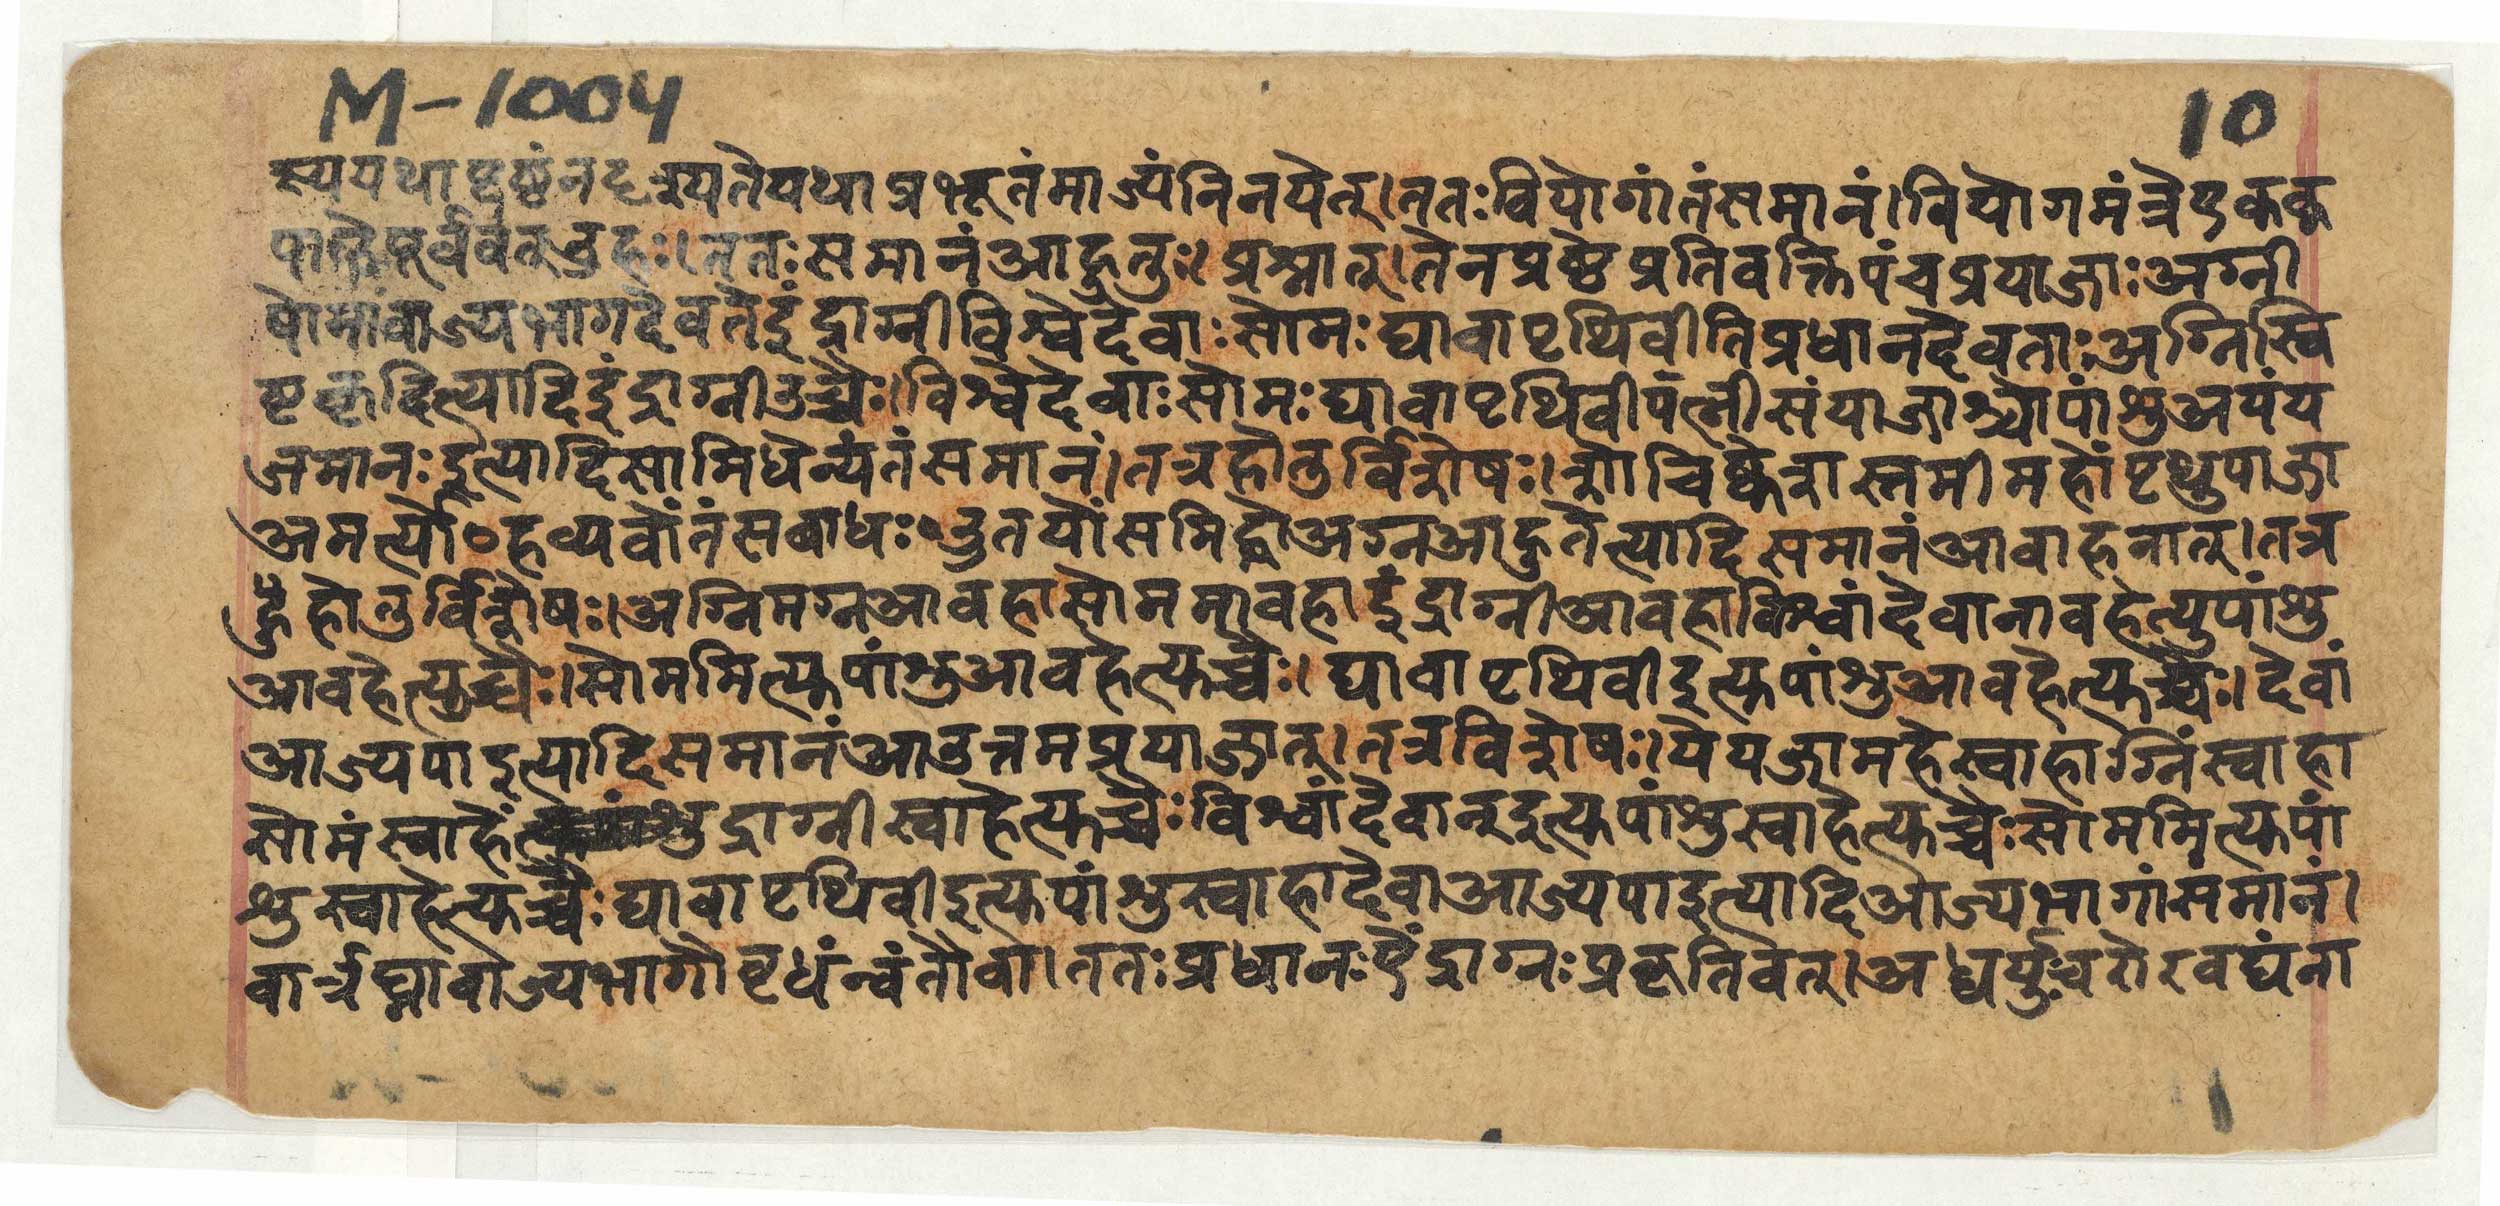 M-1004
10
स्ययथापृष्ठंनदृश्यतेयथाप्रभूतंमाज्यंनिनयेत्।ततःवियोगांतंसमानं।वियोगमंत्रेएकक
पूर्ववत्नुहः।ततःसमानंआहुतुः।प्रश्नात्।तेनप्रष्ठेप्रतिवक्तिपंचप्रयाजाःअग्नी
षोमांवाज्यभागदेवतेइंद्राग्नीविश्वेदेवाःसोमःद्यावापृथिवीतिप्रधानदेवताःअग्निस्वि
ष्टकृदित्यादिइंद्राग्नीउच्चैः।विश्वेदेवाःसोमःद्यावापृथिवीपत्नीसंयाजाश्चोपांशुअयंय
जमानःइत्यादिसामिधेन्यंतंसमानं।तत्रहौतुर्विशेषः।शोचिष्केशस्तमीमहों पृथुपाजा
अमर्त्यो॰हव्यवोंतंसबाधः॰द्रुतयोंसमिद्धोअग्नआहुतेत्यादिसमानंआवाहनात्।तत्र
हौहोतुर्विशेषः।अग्निमग्नआवहासोममावहाइंद्राग्नीआवहाविश्वांदेवानावहेत्युपांशु
आवहेत्युच्चैः।सोममित्युपांशुआवहेत्युच्चैः।द्यावापृथिवीइत्युपांशुआवहेत्युच्चैः।देवां
आज्यपाइत्यादिसमानंआउत्तमप्रयाजात्।तत्रविशेषः।येयजामहेस्वाहाग्निंस्वाहा
सोमंस्वाहें द्राग्नीस्वाहेत्युच्चैःविश्वांदेवान्इत्युपांशुस्वाहेत्युच्चैःसोममित्युपां
शुस्वाहेत्युच्चैःद्यावापृथिवीइत्युपांशुस्वाहादेवाआज्यपाइत्यादिआज्यभागांसमानं।
वार्त्रघ्नावाज्यभागौवृधंन्वंतौवा।ततःप्रधानःऐंद्राग्नःप्रकृतिवत्।अध्वर्युःचरोरवघंना